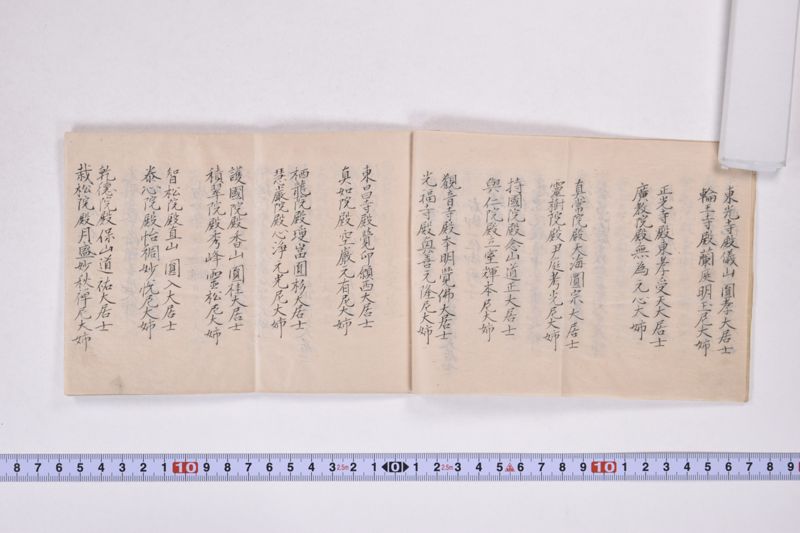 東光寺殿儀山圓孝大居士
輪王寺殿蘭庭明玉尼大姉
正光寺殿東
受天大居士
廣教院殿無為元心大姉
真常院殿大海圓宗大居士
靈樹院殿尹庭考光尼大姉
持國院殿念山道正大居士
與仁院殿立室輝本尼大姉
觀音寺殿本明覺佛大居士
光福寺殿與善元隆尼大姉
東昌寺殿覺印頓西大居士
真如院殿空巖元有尼大姉
栖龍院殿瓊
圓杉大居士
巖院殿心淨元光尼大姉
護國院殿香山圓桂大居士
積翠院殿考峰靈松尼大姉
智松院殿直山圓入大居士
泰心院殿怡稠妙悅尼大姉
乾德院殿保山道祐大居士
栽松院殿月盛妙秋禅尼大姉
8 7 6 5 4 3 2 1 10 9 8 7 6 5 4 3 2.5m 2 1 0 1 2 2.5m 3 4 5 6 7 8 9 10 1 2 3 4 5 6 7 8 9